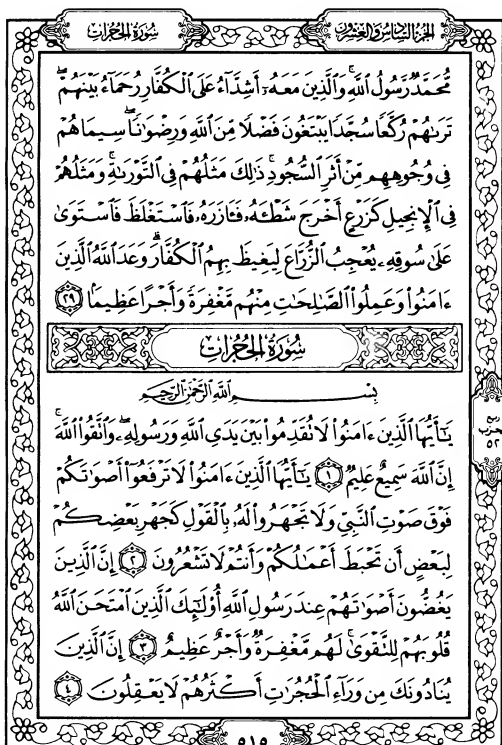 سُورَةُ الحُجُرَاتِ
الجُزْءُ السَّادِسُ وَالعِشْرُونَ
مُّحَمَّدٌ رَّسُولُ ٱللَّهِ ۚ وَٱلَّذِينَ مَعَهُۥٓ أَشِدَّآءُ عَلَى ٱلْكُفَّارِ رُحَمَآءُ بَيْنَهُمْ ۖ
تَرَىٰهُمْ رُكَّعًا سُجَّدًا يَبْتَغُونَ فَضْلًا مِّنَ ٱللَّهِ وَرِضْوَٰنًا ۖ سِيمَاهُمْ
فِى وُجُوهِهِم مِّنْ أَثَرِ ٱلسُّجُودِ ۚ ذَٰلِكَ مَثَلُهُمْ فِى ٱلتَّوْرَىٰةِ ۚ وَمَثَلُهُمْ
فِى ٱلْإِنجِيلِ كَزَرْعٍ أَخْرَجَ شَطْـَٔهُۥ فَـَٔازَرَهُۥ فَٱسْتَغْلَظَ فَٱسْتَوَىٰ
عَلَىٰ سُوقِهِۦ يُعْجِبُ ٱلزُّرَّاعَ لِيَغِيظَ بِهِمُ ٱلْكُفَّارَ ۗ وَعَدَ ٱللَّهُ ٱلَّذِينَ
ءَامَنُوا۟ وَعَمِلُوا۟ ٱلصَّـٰلِحَـٰتِ مِنْهُم مَّغْفِرَةً وَأَجْرًا عَظِيمًۢا ٢٩
سُورَةُ الحُجُرَاتِ
بِسْمِ ٱللَّهِ ٱلرَّحْمَـٰنِ ٱلرَّحِيمِ
يَـٰٓأَيُّهَا ٱلَّذِينَ ءَامَنُوا۟ لَا تُقَدِّمُوا۟ بَيْنَ يَدَىِ ٱللَّهِ وَرَسُولِهِۦ ۖ وَٱتَّقُوا۟ ٱللَّهَ ۚ
إِنَّ ٱللَّهَ سَمِيعٌ عَلِيمٌ ١ يَـٰٓأَيُّهَا ٱلَّذِينَ ءَامَنُوا۟ لَا تَرْفَعُوٓا۟ أَصْوَٰتَكُمْ
فَوْقَ صَوْتِ ٱلنَّبِىِّ وَلَا تَجْهَرُوا۟ لَهُۥ بِٱلْقَوْلِ كَجَهْرِ بَعْضِكُمْ
لِبَعْضٍ أَن تَحْبَطَ أَعْمَـٰلُكُمْ وَأَنتُمْ لَا تَشْعُرُونَ ٢ إِنَّ ٱلَّذِينَ
يَغُضُّونَ أَصْوَٰتَهُمْ عِندَ رَسُولِ ٱللَّهِ أُو۟لَـٰٓئِكَ ٱلَّذِينَ ٱمْتَحَنَ ٱللَّهُ
قُلُوبَهُمْ لِلتَّقْوَىٰ ۚ لَهُم مَّغْفِرَةٌ وَأَجْرٌ عَظِيمٌ ٣ إِنَّ ٱلَّذِينَ
يُنَادُونَكَ مِن وَرَآءِ ٱلْحُجُرَٰتِ أَكْثَرُهُمْ لَا يَعْقِلُونَ ٤
٥١٥